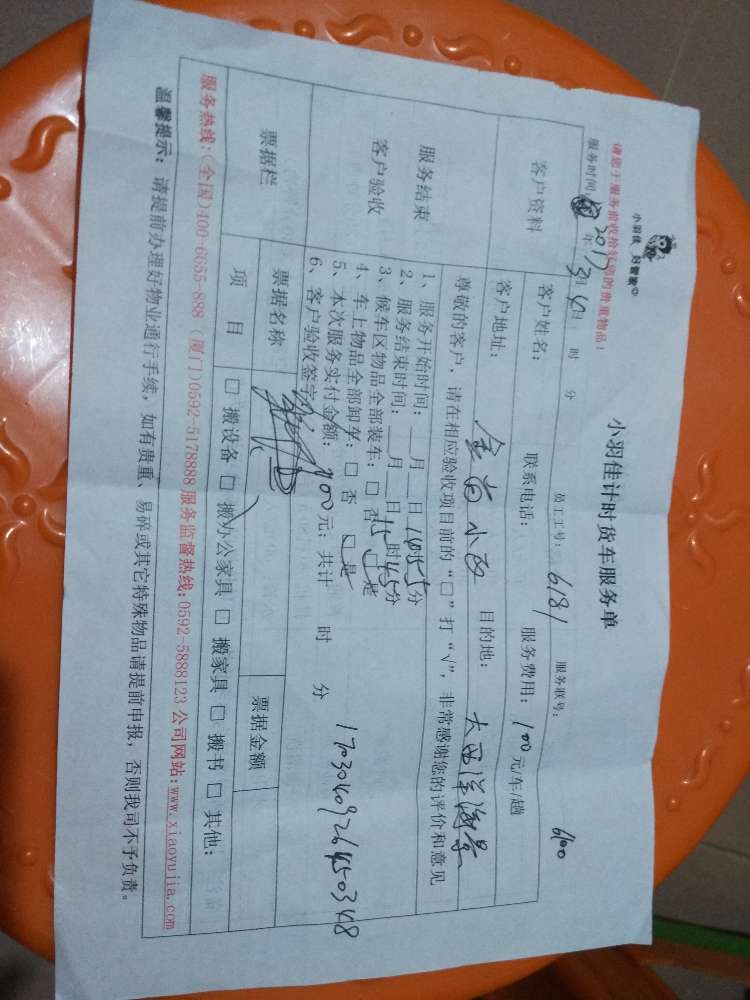 小羽佳 好管家
请您于服务前收拾好您的贵重物品!
小羽佳计时货车服务单
服务时间: 2017年3月4日 时 分 员工工号: 6181 服务联号: 6100
客户资料
客户姓名: 联系电话: 服务费用: 100元/车/趟
客户地址: 金尚小区 目的地: 大西洋海景
尊敬的客户,请在相应验收项目前的“□”打“√”,非常感谢您的评价和意见
服务结束
客户验收
1、服务开始时间: 月 日14时55分
2、服务结束时间: 月 日15时45分
3、候车区物品全部装车:□ 否 □ 是
4、车上物品全部卸车:□ 否 □ 是
5、本次服务实付金额: 元;共计 时 分
6、客户验收签字:
1703040926450348
票据栏
票据名称 票据金额
项 目 □ 搬设备 □ 搬办公家具 □ 搬家具 □ 搬书 □ 其他:
服务热线:(全国)400-6655-888 (厦门)0592-5178888 服务监督热线:0592-5888123 公司网站:www.xiaoyujia.com
温馨提示:请提前办理好物业通行手续,如有贵重、易碎或其它特殊物品请提前申报,否则我司不予负责。